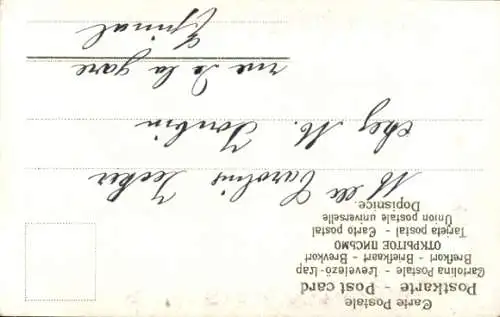 Carte Postale
Postkarte - Post card
Cartolina Postale - Levelező-Lap
Brefkort - Briefkaart - Brevkort
ОТКРЫТОЕ ПИСЬМО
Tarjeta postal - Carto postal
Union postale universelle
Dopisnice.
Melle Caroline
chez M.
rue de la gare
Epinal